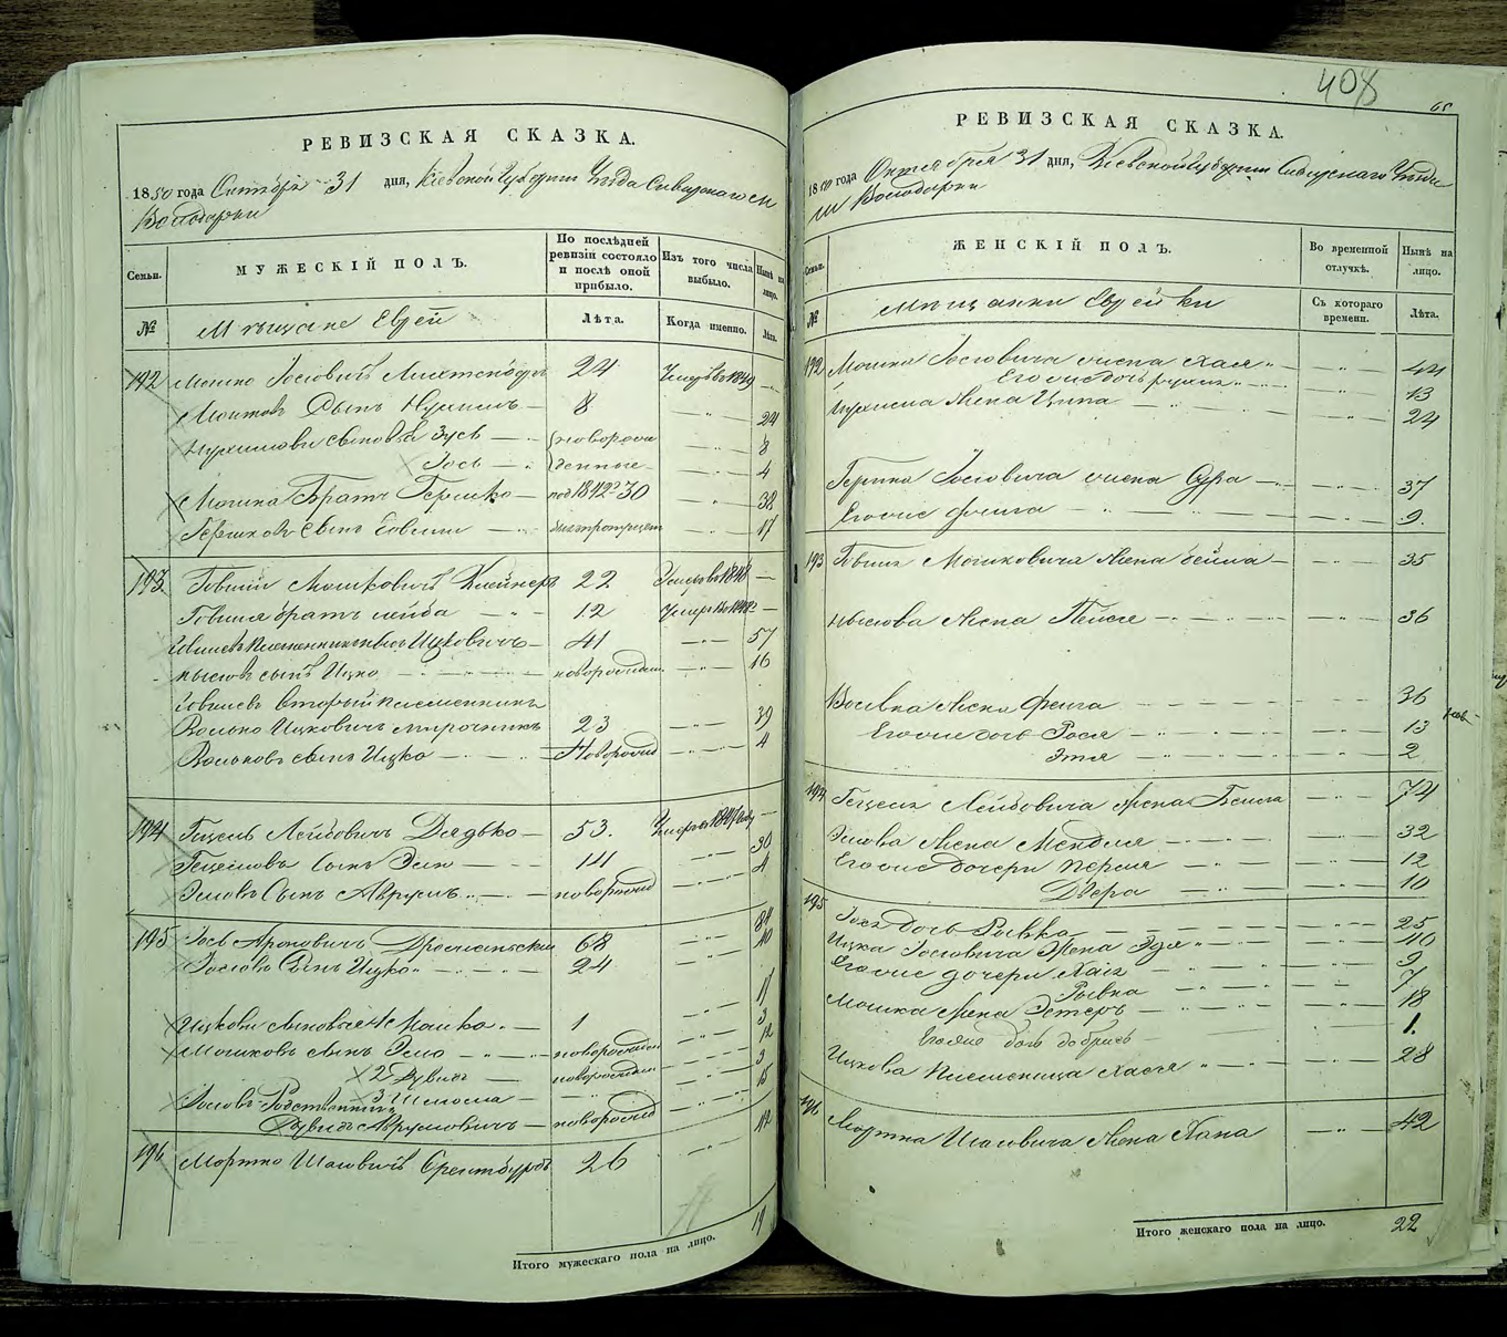 РЕВИЗСКАЯ СКАЗКА.
1850 года Октября 31 дня, Кіевской Губерніи Уѣзда Сквирскаго м
Володарки
Семьи.
МУЖЕСКІЙ ПОЛЪ.
По послѣдней ревизіи состояло и послѣ оной прибыло.
Изъ того числа выбыло.
Нынѣ на лицо.
№
Мѣщане Евреи
Лѣта.
Когда именно.
Лѣта.
192 Мошко Іосіовичъ 24 Умеръ въ 1849 —
Мошковъ Сынъ Нухимъ — 8 — 24
Нухимовы сыновья Зусь — новорож 8
Іось — денные 4
Мошка Братъ Гершко — 30 — 32
Гершковъ Сынъ — 17
193 Говшій Мошковичъ Клейнеръ 22 Умеръ въ 1848 —
Говшія братъ Лейба — 12 Умеръ —
Ицковичъ — 41 — 57
сынъ Ицко — новорожден. — 16
Говшіевъ вторый племянникъ
Волько Ицковичъ Мирочникъ 23 — 39
Вольковъ сынъ Ицко — Новорожд — 4
194 Гецель Лейбовичъ Дядько — 53. Умеръ 1847 —
Гецелювъ Сынъ Элю — 14 — 30
Элювъ Сынъ Аврумъ — новорожд — 4
195 Іось Ароновичъ 68 — 84
Іосіовъ Сынъ Ицко — 24 — 40
Ицковы сыновья 1 Мошко — 1 — 17
Мошковъ сынъ Элю — новорожден — 3
2 Дувидъ — новорожден — 12
3 Шлиома — 3
Іосіовъ Родственникъ 15
Дувидъ Аврумовичъ — новорожд
196 Мортко Шаіовичъ 26 — 42
19
Итого мужескаго пола на лицо.
408
65
РЕВИЗСКАЯ СКАЗКА.
1850 года Октября 31 дня, Кіевской Губерніи Сквирскаго Уѣзда
м Володарки
Семьи.
ЖЕНСКІЙ ПОЛЪ.
Во временной отлучкѣ.
Нынѣ на лицо.
№
Мѣщанки Еврейки
Съ котораго времени.
Лѣта.
192 Мошка Іосіовича жена Хая — 44
Его же дочь — 13
Нухима Жена Ципа — 24
Гершка Іосіовича жена Сура — 37
Его же Фейга — 9.
193 Говшія Мошковича Жена Бейла — 35
Жена Пейся — 36
Волька Жена Фейга — 36
Его же дочь Рося — 13
Этля — 2
194 Гецеля Лейбовича Жена Бейла — 74
Элюва Жена Мендля — 32
Его же дочери Перля — 12
Двера — 10
195 Іося дочь Рывка — 25
Ицка Іосіовича Жена Эдя — 40
Его же дочери Хаія — 9
Рывка — 7
Мошка Жена Эстеръ — 18
Его же дочь Добришъ — 1.
Ицкова племяница Хася — 28
196 Мортка Шаіовича Жена Хана — 42
Итого женскаго пола на лицо. 22